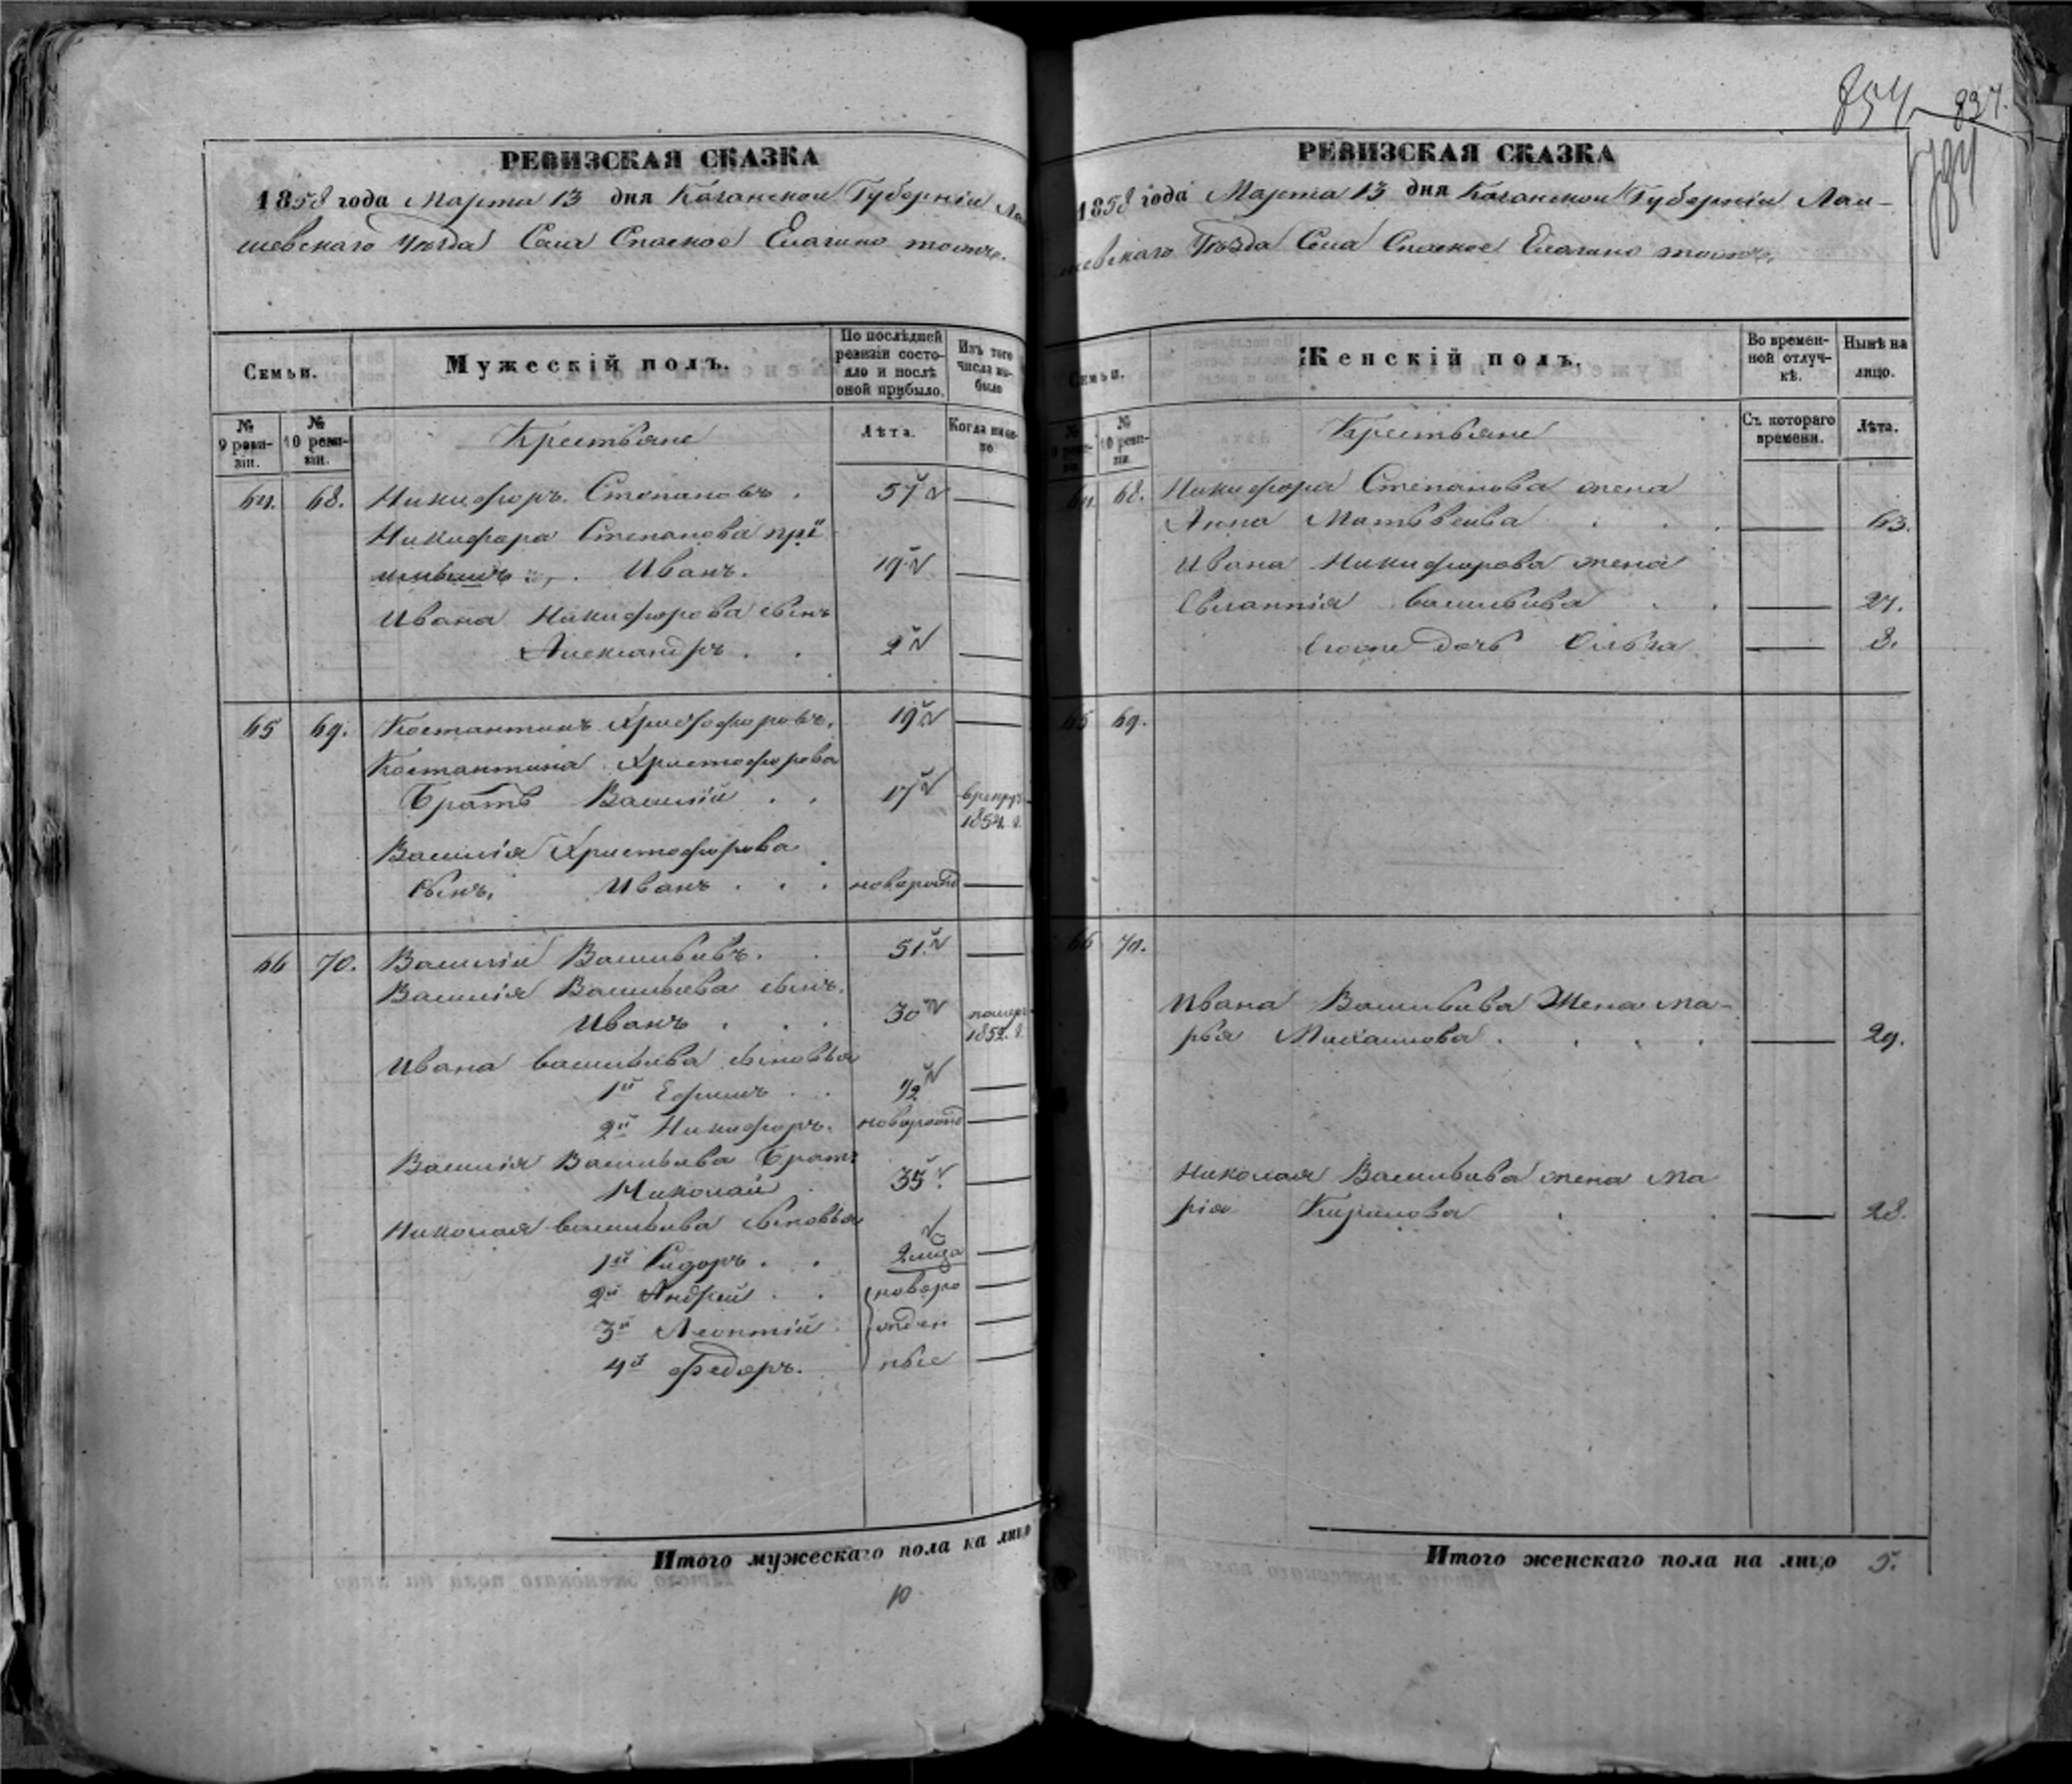 854 837.
РЕВИЗСКАЯ СКАЗКА
1858 года Марта 13 дня Казанской Губерніи Ла
шевскаго Уѣзда Села Спаское Елагино тожъ.
Семьи.
Мужескій полъ.
По послѣдней ревизіи состояло и послѣ оной прибыло.
Изъ того числа выбыло
№ 9 ревизіи.
№ 10 ревизіи.
Крестьяне
Лѣта.
Когда именно
64. 68. Никифоръ Степановъ. 57
Никифора Степанова прі
емышъ Иванъ. 19
Ивана Никифорова сынъ
Александръ. 2
65 69. Костантинъ Христофоровъ. 19
Костантина Христофорова
Братъ Василій 17 в рекру
1854. г.
Василія Христофорова
сынъ, Иванъ новорожд
66 70. Василій Васильевъ. 51
Василія Васильева сынъ.
Иванъ 30 помер
1852. г.
Ивана Васильева сыновья
1й Ефимъ 1/2
2й Никифоръ. новорожд
Василія Васильева Братъ
Николай 35
Николая Васильева сыновья
1й Сидоръ. 2 мца
2й Андрей новоро
3й Леонтій жден
4й Федоръ. ные
Итого мужескаго пола на лицо
10
РЕВИЗСКАЯ СКАЗКА
1858 года Марта 13 дня Казанской Губерніи Лаи-
шевскаго Уѣзда Села Спаское Елагино тожъ.
Семьи.
Женскій полъ.
Во временной отлучкѣ.
Нынѣ на лицо.
№ 9 ревизіи
№ 10 ревизіи
Крестьяне
Съ котораго времени.
Лѣта.
64. 68. Никифора Степанова жена
Анна Матвѣева 63.
Ивана Никифорова жена
Евлампія Васильева 27.
Егоже дочь Ольга 8.
65 69.
66 70.
Ивана Васильева Жена Ма-
рья Михаилова 29.
Николая Васильева жена Ма
рія Кирилова 28.
Итого женскаго пола на лицо 5.